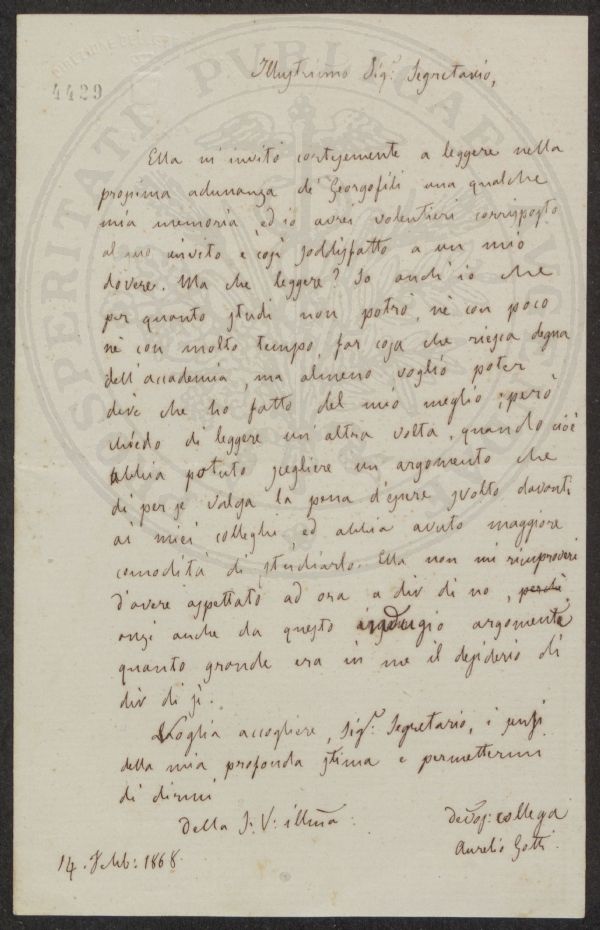 4429
Illustrissimo Sigr. Segretario,
Ella m'invitò cortesemente a leggere nella
prossima adunanza de' Georgofili una qualche
mia memoria ed io avrei volentieri corrisposto
al suo invito e così soddisfatto a un mio
dovere. Ma che leggere? So anch'io che
per quanto studi non potrò, nè con poco
nè con molto tempo, far cosa che riesca degna
dell'accademia, ma almeno voglio poter
dire che ho fatto del mio meglio; però
chiedo di leggere un'altra volta, quando cioè
abbia potuto scegliere un argomento che
di per se valga la pena d'essere svolto davanti
ai miei colleghi ed abbia avuto maggiore
comodità di studiarlo. Ella non mi rimproveri
d'avere aspettato ad ora a dir di no, perchè
anzi anche da questo indugio argomenti
quanto grande era in me il desiderio di
dir di sì.
Voglia accogliere, Sigr. Segretario, i sensi
della mia profonda stima e permettermi
di dirmi
Della S. V: illma.
devoss: collega
Aurelio Gotti
14. Febb: 1868.